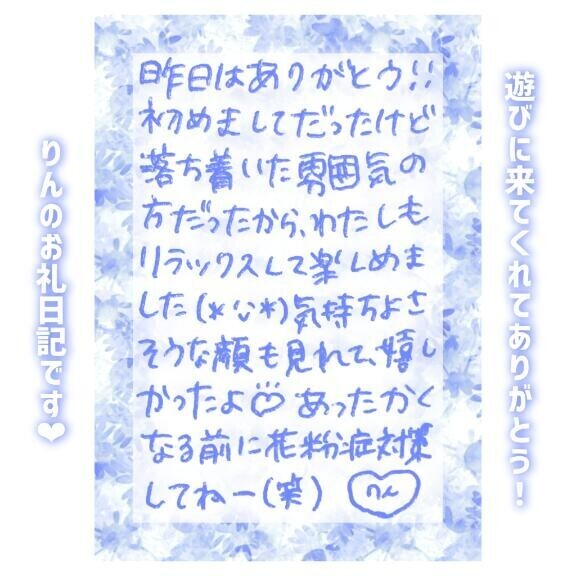 遊びに来てくれてありがとう!
昨日はありがとう!!
初めましてだったけど
落ち着いた雰囲気の
方だったから、わたしも
リラックスして楽しめま
した(*ˊᵕˋ*)気持ちよさ
そうな顔も見れて、嬉し
かったよ♡ あったかく
なる前に花粉症対策
してねー(笑) りん
りんのお礼日記です❤